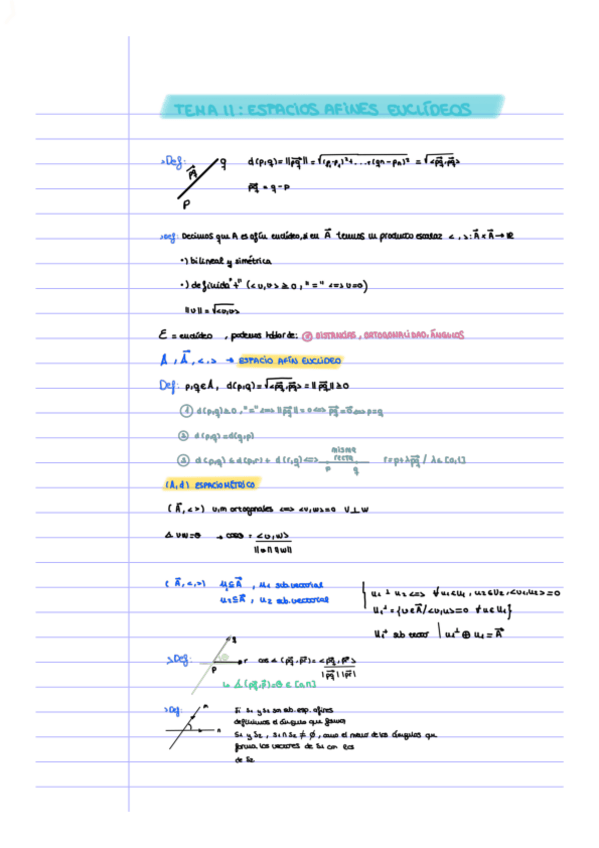 TEMA 11: ESPACIOS AFINES EUCLÍDEOS
>Def: p q \vec{pq} d(p,q)=||\vec{pq}||=√((p₁-p₁)²+...+(qn-pn)²) = √<\vec{pq},\vec{pq}>
\vec{pq} = q-p
>Def: Decimos que A es afín euclídeo, si en \vec{A} tenemos un producto escalar < , >: \vec{A}×\vec{A}→ℝ
•) bilineal y simétrica
•) definida "+" (<v,v> ≥0 , "=" <=> v=0)
||v|| = √<v,v>
E = euclídeo , podemos hablar de: DISTANCIAS, ORTOGONALIDAD, ÁNGULOS
A , \vec{A}, < , > → ESPACIO AFÍN EUCLÍDEO
Def: p,q∈A, d(p,q)=√<\vec{pq},\vec{pq}> = ||\vec{pq}||≥0
① d(p,q)≥0 , "=" <=> ||\vec{pq}|| = 0 <=> \vec{pq}=\vec{0} <=> p=q
② d(p,q)=d(q,p)
③ d(p,q) ≤ d(p,r) + d(r,q) <=> misma recta p q r=p+λ\vec{pq} / λ∈[0,1]
(A,d) ESPACIO MÉTRICO
(\vec{A}, < >) ortogonales <=> <v,w>=0 v⊥w
∡ vw=θ → cosθ = <v,w> / ||v|| ||w||
(\vec{A}, < , >) u₁⊆\vec{A} , u₁ sub.vectorial
u₂⊆\vec{A} , u₂ sub.vectorial
u₁ ⊥ u₂ <=> ∀u₁∈U₁, u₂∈U₂, <u₁,u₂>=0
U₁^⊥ = {v∈\vec{A}/<v,u>=0 ∀u∈U₁}
U₁^⊥ sub vector | U₁^⊥ ⊕ U₁ = \vec{A}
>Def: p r cos∡(\vec{pq},\vec{pr})= <\vec{pq},\vec{pr}> / |\vec{pq}| |\vec{pr}|
↳ ∡(\vec{pq},\vec{pr})=θ∈[0,π]
>Def: Si S₁ y S₂ son sub. esp. afines
definimos el ángulo que forman
S₁ y S₂ , S₁∩S₂ ≠ ∅, como el menor de los ángulos que
forma los vectores de S₁ con los
de S₂